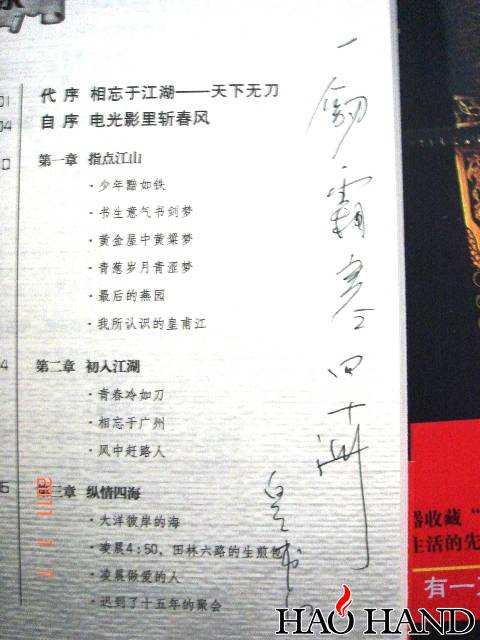 代 序 相忘于江湖——天下无刀
自 序 电光影里斩春风
第一章 指点江山
·少年黯如铁
·书生意气书剑梦
·黄金屋中黄粱梦
·青葱岁月青涩梦
·最后的燕园
·我所认识的皇甫江
第二章 初入江湖
·青春冷如刀
·相忘于广州
·风中赶路人
第三章 纵情四海
·大洋彼岸的海
·凌晨4:50,田林六路的生煎包
·凌晨做爱的人
·迟到了十五年的聚会
一劍霜寒四十洲
器收藏“
生活的先
有一
HAO HAND